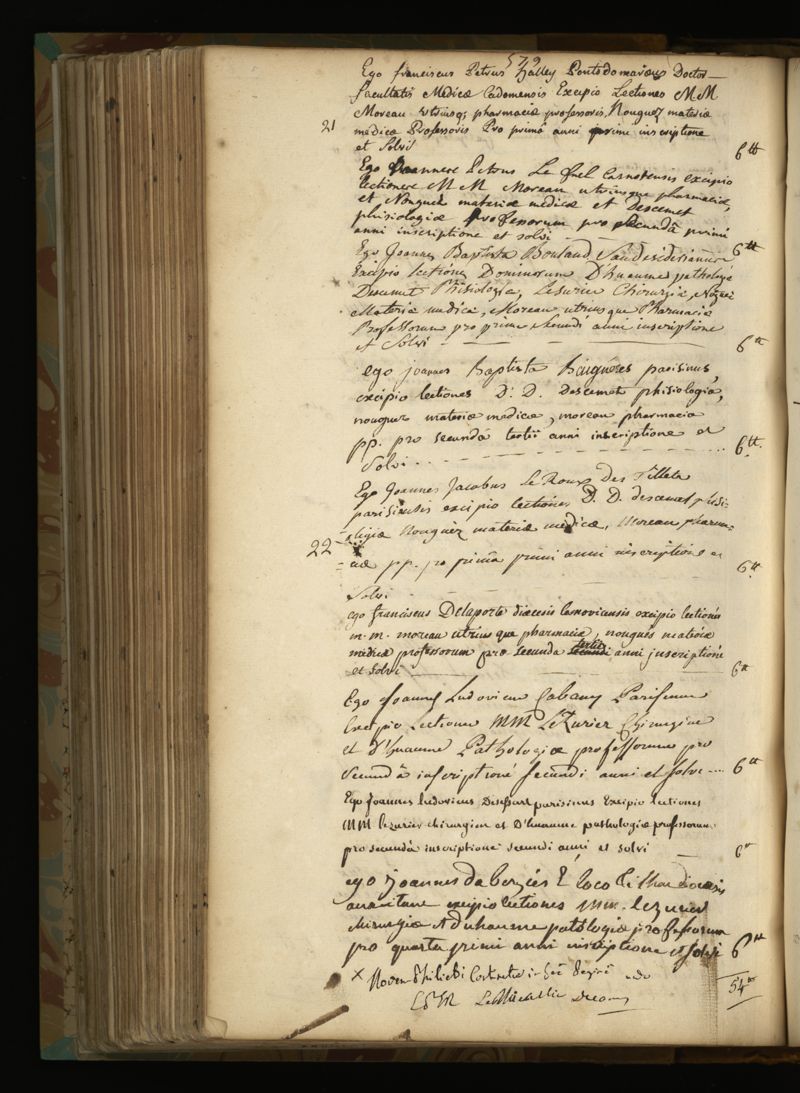 579
Ego franciscus Petrus halley Pontsdomarous Doctor
facultatis Medicæ Cadomensis Excipio Lectiones MM
Moreau utriusq; pharmaciæ professoris, Nouguez materiæ
21 medicæ Professoris Pro primâ anni primi inscriptione
et Solvi 6 tt
Ego Petrus Le fuel Carnotensis excipio
lectiones MM Moreau utriusque pharmaciæ,
et Nouguez materiæ medicæ et Descemet
phisiologiæ Professorum pro secundâ primi
anni inscriptione et solvi 6 tt
Ego Joannes Baptista Boulaud
Excipio lectiones Dominorum D'huaume pathologiæ
Descemet Phisiologiæ, Lesurier Chirurgiæ,
Materiæ medicæ, Moreau utriusque Pharmaciæ
Professorum pro prima secundi anni inscriptione
et Solvi 6 tt
ego joannes baptista baignéres parisinus,
excipio lectiones D. D. Descemet phisiologiæ,
nouguez materiæ medicæ, moreau pharmaciæ
pp. pro secundâ tertii anni inscriptione et
Solvi 6 tt
Ego Joannes Jacobus Le Roux Des Tillets
parisinensis excipio lectiones D. D. descemet phisi-
ologiæ Nouguez materiæ medicæ, Moreau pharma-
22 ciæ pp. pro primâ primi anni inscriptione et
Solvi 6 tt
ego franciscus Delaporte diœcesis lexoviensis excipio lectiones
m.m. moreau utriusque pharmaciæ, nouguès materiæ
medicæ professorum pro secunda secundi tertii anni inscriptione
et solvi 6 tt
Ego Joannes Ludovicus Cabany Parisinus
Excipio Lectiones MM LeZurier Chirurgiæ
et d'huaume Pathologiæ professorum pro
Secundâ inscriptione secundi anni et solvi 6 tt
Ego Joannes ludovicus parisinus Excipio lectiones
MM lezurier chirurgiæ et D'huaume pathologiæ professorum
pro secundâ inscriptione secundi anni et solvi 6 tt
ego joannes daberzies È loco diœcesis
excipio lectiones mm. lezurier
chirurgiæ et duhaume patologiæ professorum
pro quarta primi anni inscriptione et solvi 6 tt
54 tt